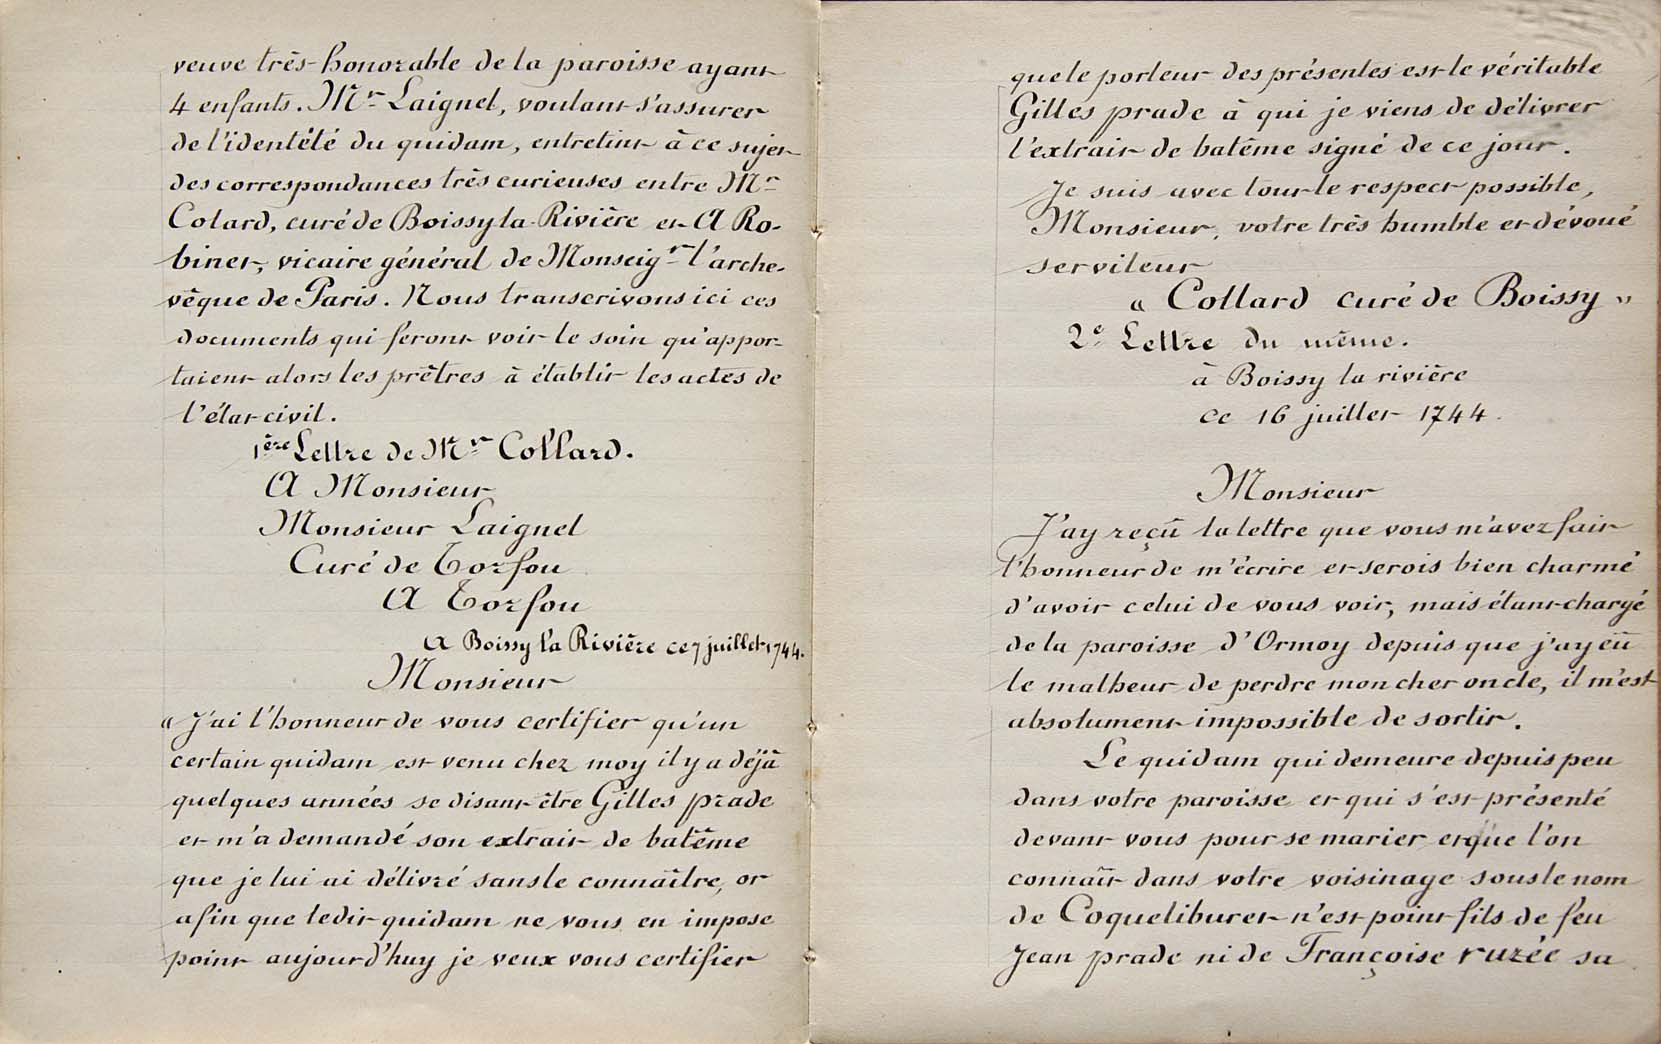 veuve très-honorable de la paroisse ayant
4 enfants. Mr Laignel, voulant s'assurer
de l'identété du quidam, entretint à ce sujet
des correspondances très curieuses entre Mr
Colard, curé de Boissy la Rivière et A Ro-
binet, vicaire général de Monseigr l'arche-
vêque de Paris. Nous transcrivons ici ces
documents qui feront voir le soin qu'appor-
taient alors les prêtres à établir les actes de
l'état civil.
1ère Lettre de Mr Collard.
A Monsieur
Monsieur Laignel
Curé de Torfou
A Torfou
A Boissy la Rivière ce 7 juillet 1744.
Monsieur
« J'ai l'honneur de vous certifier qu'un
certain quidam est venu chez moy il y a déjà
quelques années se disant être Gilles prade
et m'a demandé son extrait de batême
que je lui ai délivré sans le connaître, or
afin que ledit quidam ne vous en impose
point aujourd'huy je veux vous certifier
que le porteur des présentes est le véritable
Gilles prade à qui je viens de délivrer
l'extrait de batême signé de ce jour.
Je suis avec tout le respect possible,
Monsieur, votre très humble et dévoué
serviteur
« Collard curé de Boissy »
2e Lettre du même.
à Boissy la rivière
ce 16 juillet 1744.
Monsieur
J'ay reçû la lettre que vous m'avez fait
l'honneur de m'écrire et serois bien charmé
d'avoir celui de vous voir, mais étant chargé
de la paroisse d'Ormoy depuis que j'ay eû
le malheur de perdre mon cher oncle, il m'est
absolument impossible de sortir.
Le quidam qui demeure depuis peu
dans votre paroisse et qui s'est présenté
devant vous pour se marier et que l'on
connait dans votre voisinage sous le nom
de Coqueliburet n'est point fils de feu
Jean prade ni de Françoise ruzée sa